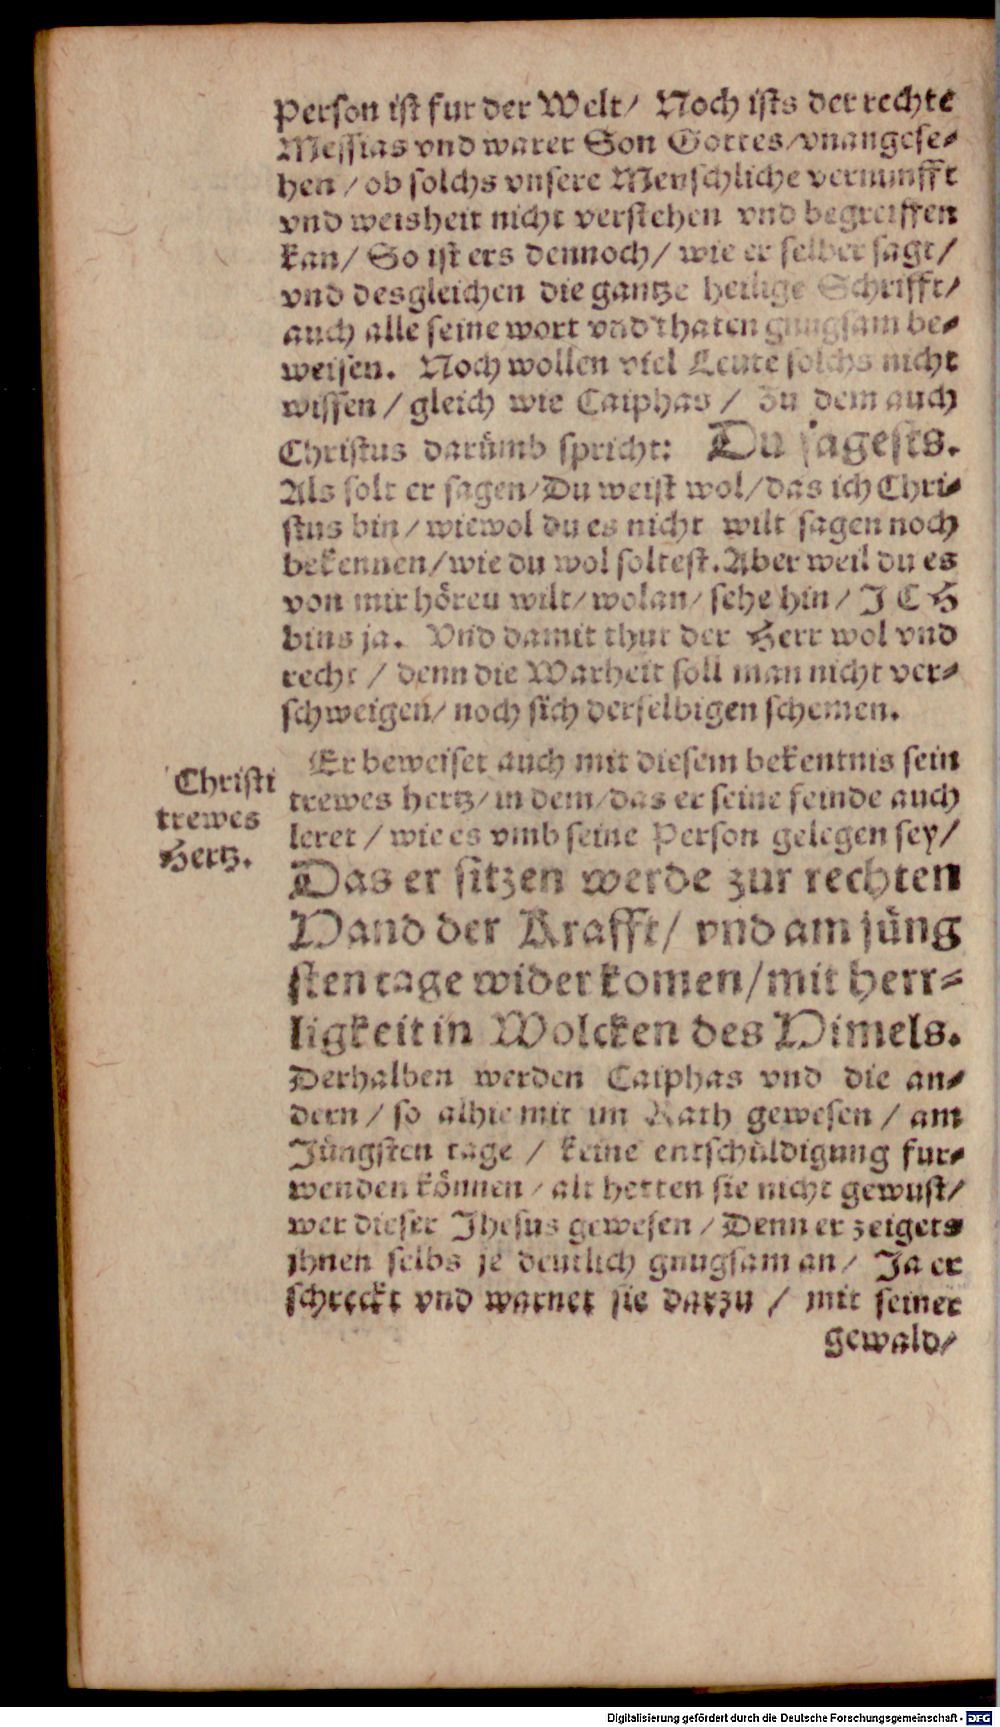 Person ist fur der Welt/ Noch ists der rechte
Messias vnd warer Son Gottes/vnangese⸗
hen / ob solchs vnsere Menschliche vernunfft
vnd weisheit nicht verstehen vnd begreiffen
kan/ So ist ers dennoch/ wie er selber sagt/
vnd desgleichen die gantze heilige Schrifft/
auch alle seine wort vnd thaten gnugsam be⸗
weisen. Noch wollen viel Leute solchs nicht
wissen / gleich wie Caiphas / Zu dem auch
Christus darümb spricht: Du sagests.
Als solt er sagen/Du weist wol/das ich Chri⸗
stus bin / wiewol du es nicht wilt sagen noch
bekennen/wie du wol soltest. Aber weil du es
von mir hören wilt/ wolan/ sehe hin/ J C H
bins ja. Vnd damit thut der Herr wol vnd
recht / denn die Warheit soll man nicht ver⸗
schweigen/ noch sich derselbigen schemen.
Er beweiset auch mit diesem bekentnis sein
Christi
trewes
Hertz.
trewes hertz/in dem/das er seine feinde auch
leret / wie es vmb seine Person gelegen sey/
Das er sitzen werde zur rechten
Hand der Krafft/ vnd am jüng
sten tage wider komen/mit herr⸗
ligkeit in Wolcken des Himels.
Derhalben werden Caiphas vnd die an⸗
dern / so alhie mit im Rath gewesen / am
Jüngsten tage / keine entschüldigung fur⸗
wenden können / als hetten sie nicht gewust/
wer dieser Jhesus gewesen / Denn er zeigets
jhnen selbs je deutlich gnugsam an/ Ja er
schreckt vnd warnet sie darzu / mit seiner
gewald/
Digitalisierung gefördert durch die Deutsche Forschungsgemeinschaft - DFG